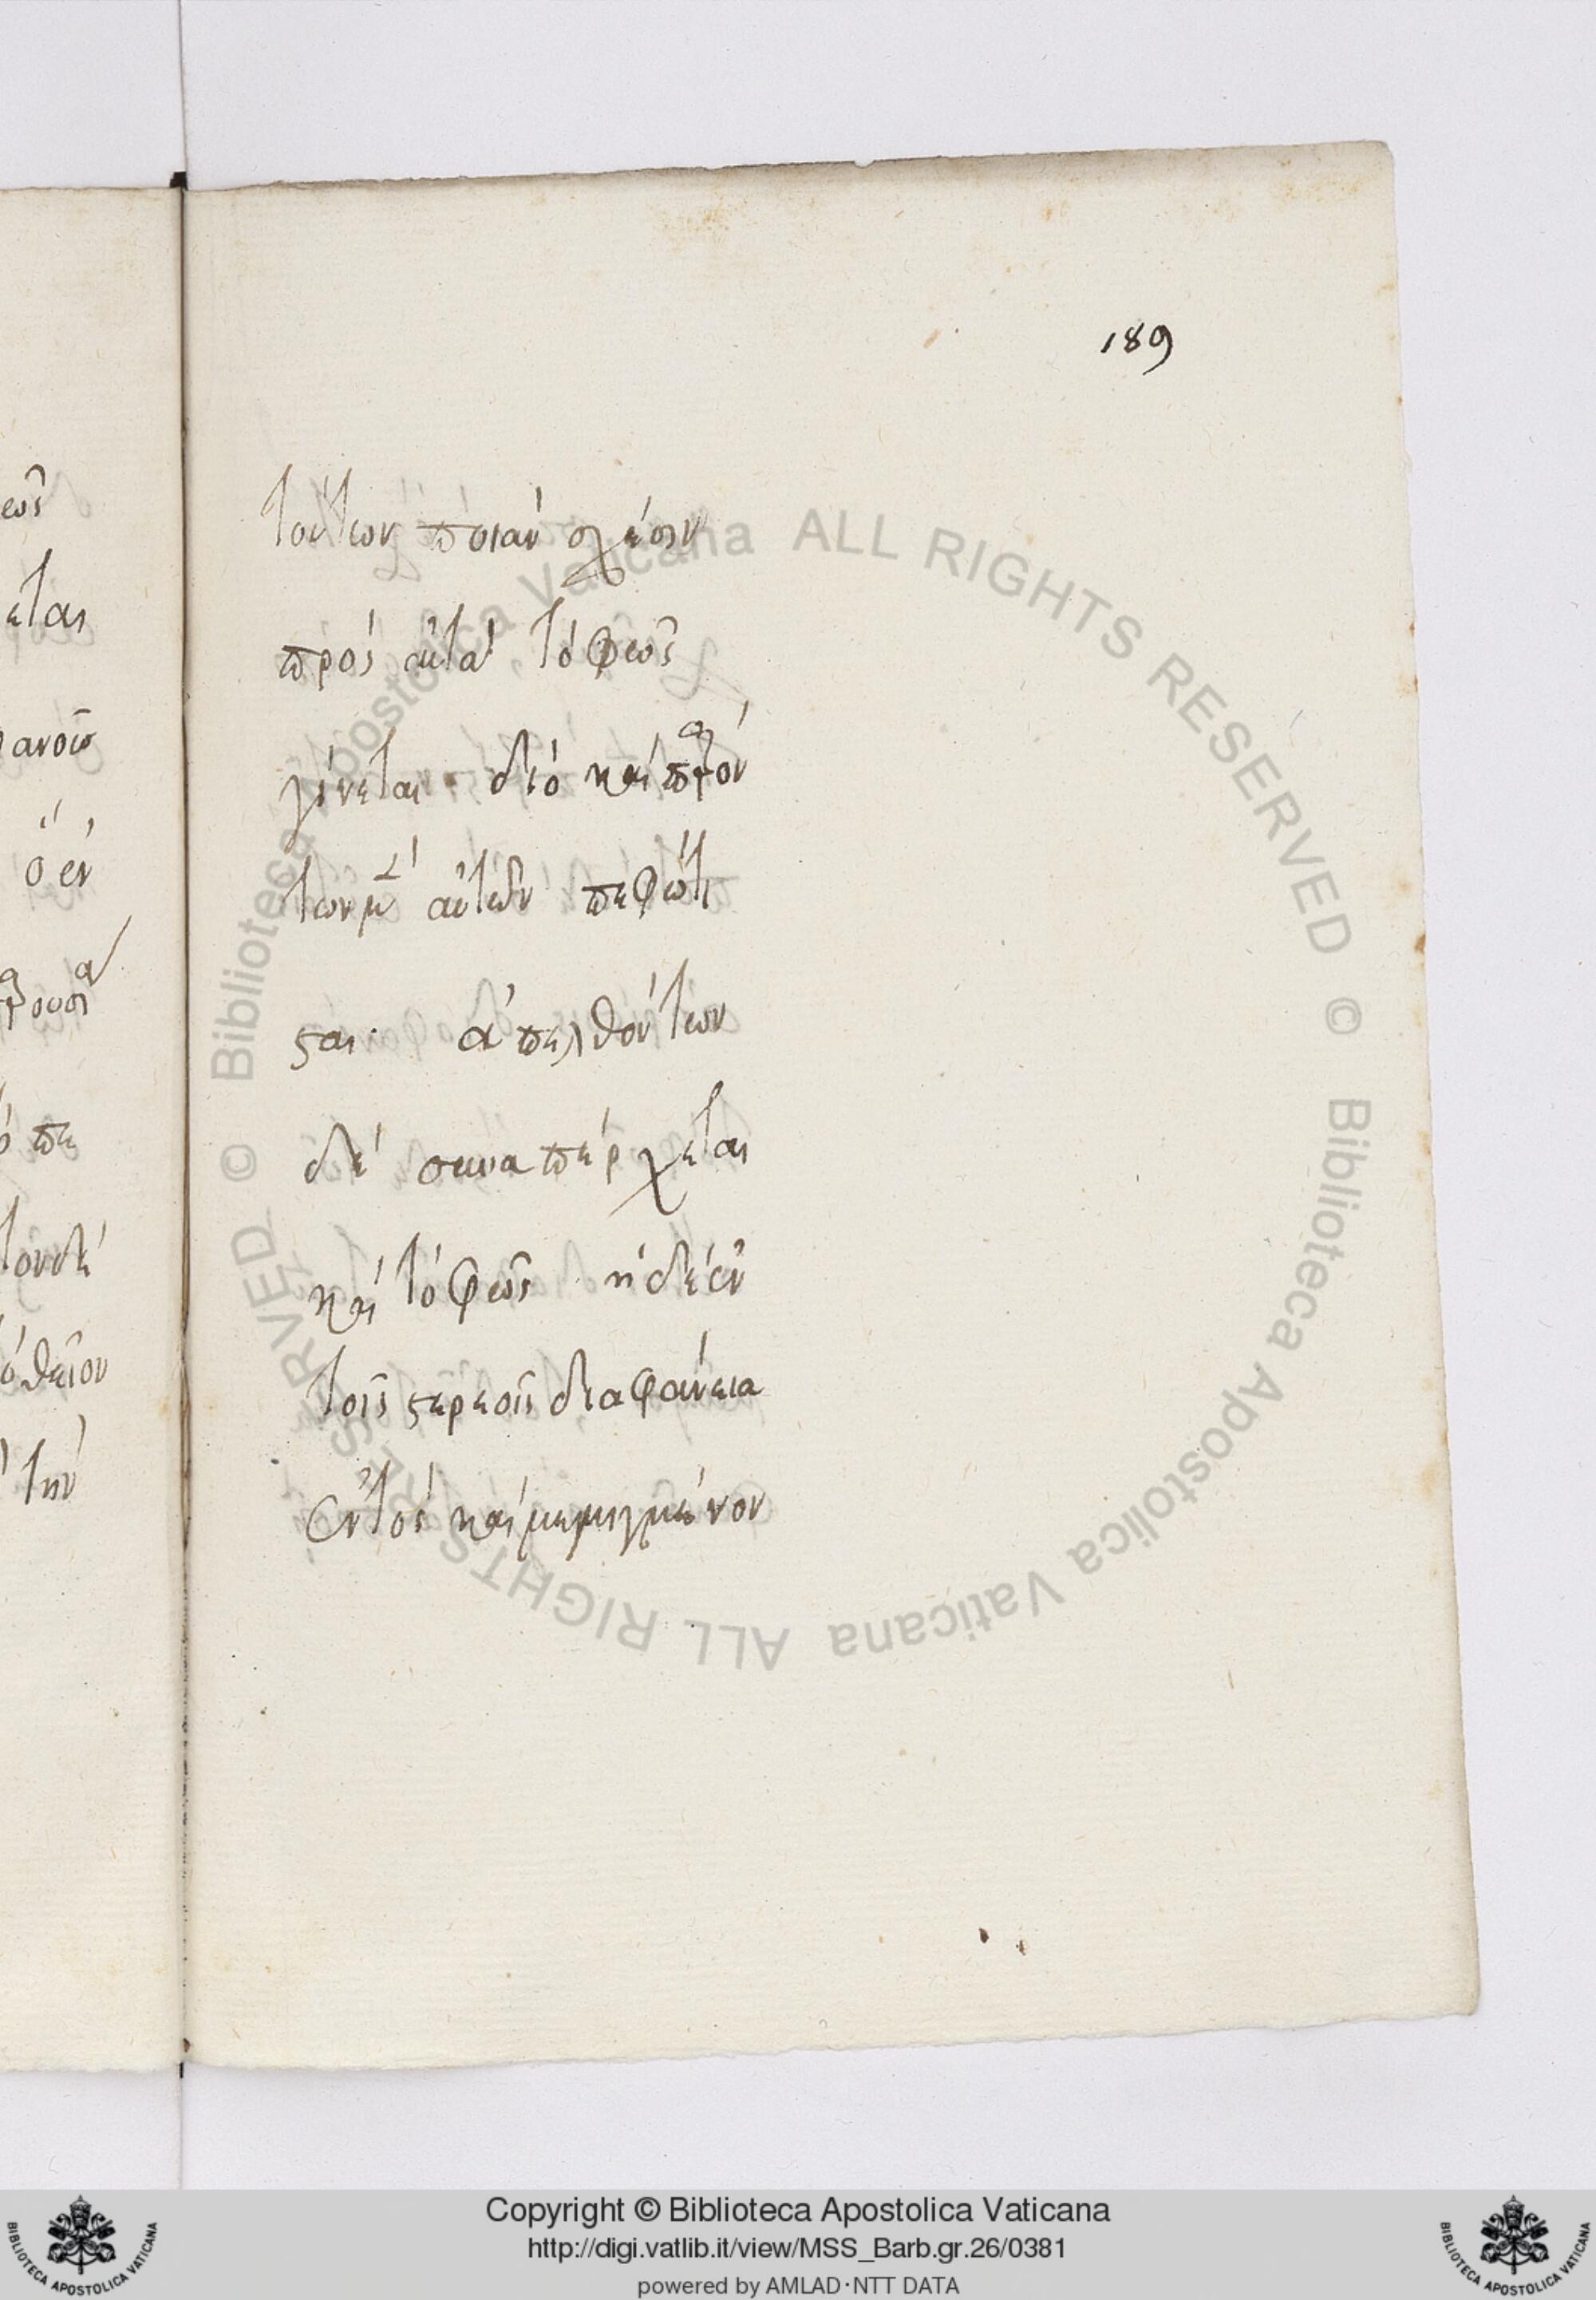 189
εῶς
εται
ανοῖς
ὁ ἐν
ουσι
ό πε
τον δὲ
όθεῖον
τὴν
τούτων ποιὰν σχέσιν
πρὸς αὐτὰ τὸ φῶς
γίνεται· διὸ καὶ
τῶν μ αὐτῶν πεφώτι
σται· ἀπελθόντων
δὲ συναπέρχεται
καὶ τὸ φῶς· ἡ δὲ ἐν
τοῖς στερεοῖς διαφάνεια
ἐντὸς καὶ μεμιγμένον
© Biblioteca Apostolica Vaticana ALL RIGHTS RESERVED © Biblioteca Apostolica Vaticana ALL RIGHTS RESERVED
BIBLIOTECA APOSTOLICA VATICANA
Copyright © Biblioteca Apostolica Vaticana
http://digi.vatlib.it/view/MSS_Barb.gr.26/0381
powered by AMLAD·NTT DATA
BIBLIOTECA APOSTOLICA VATICANA